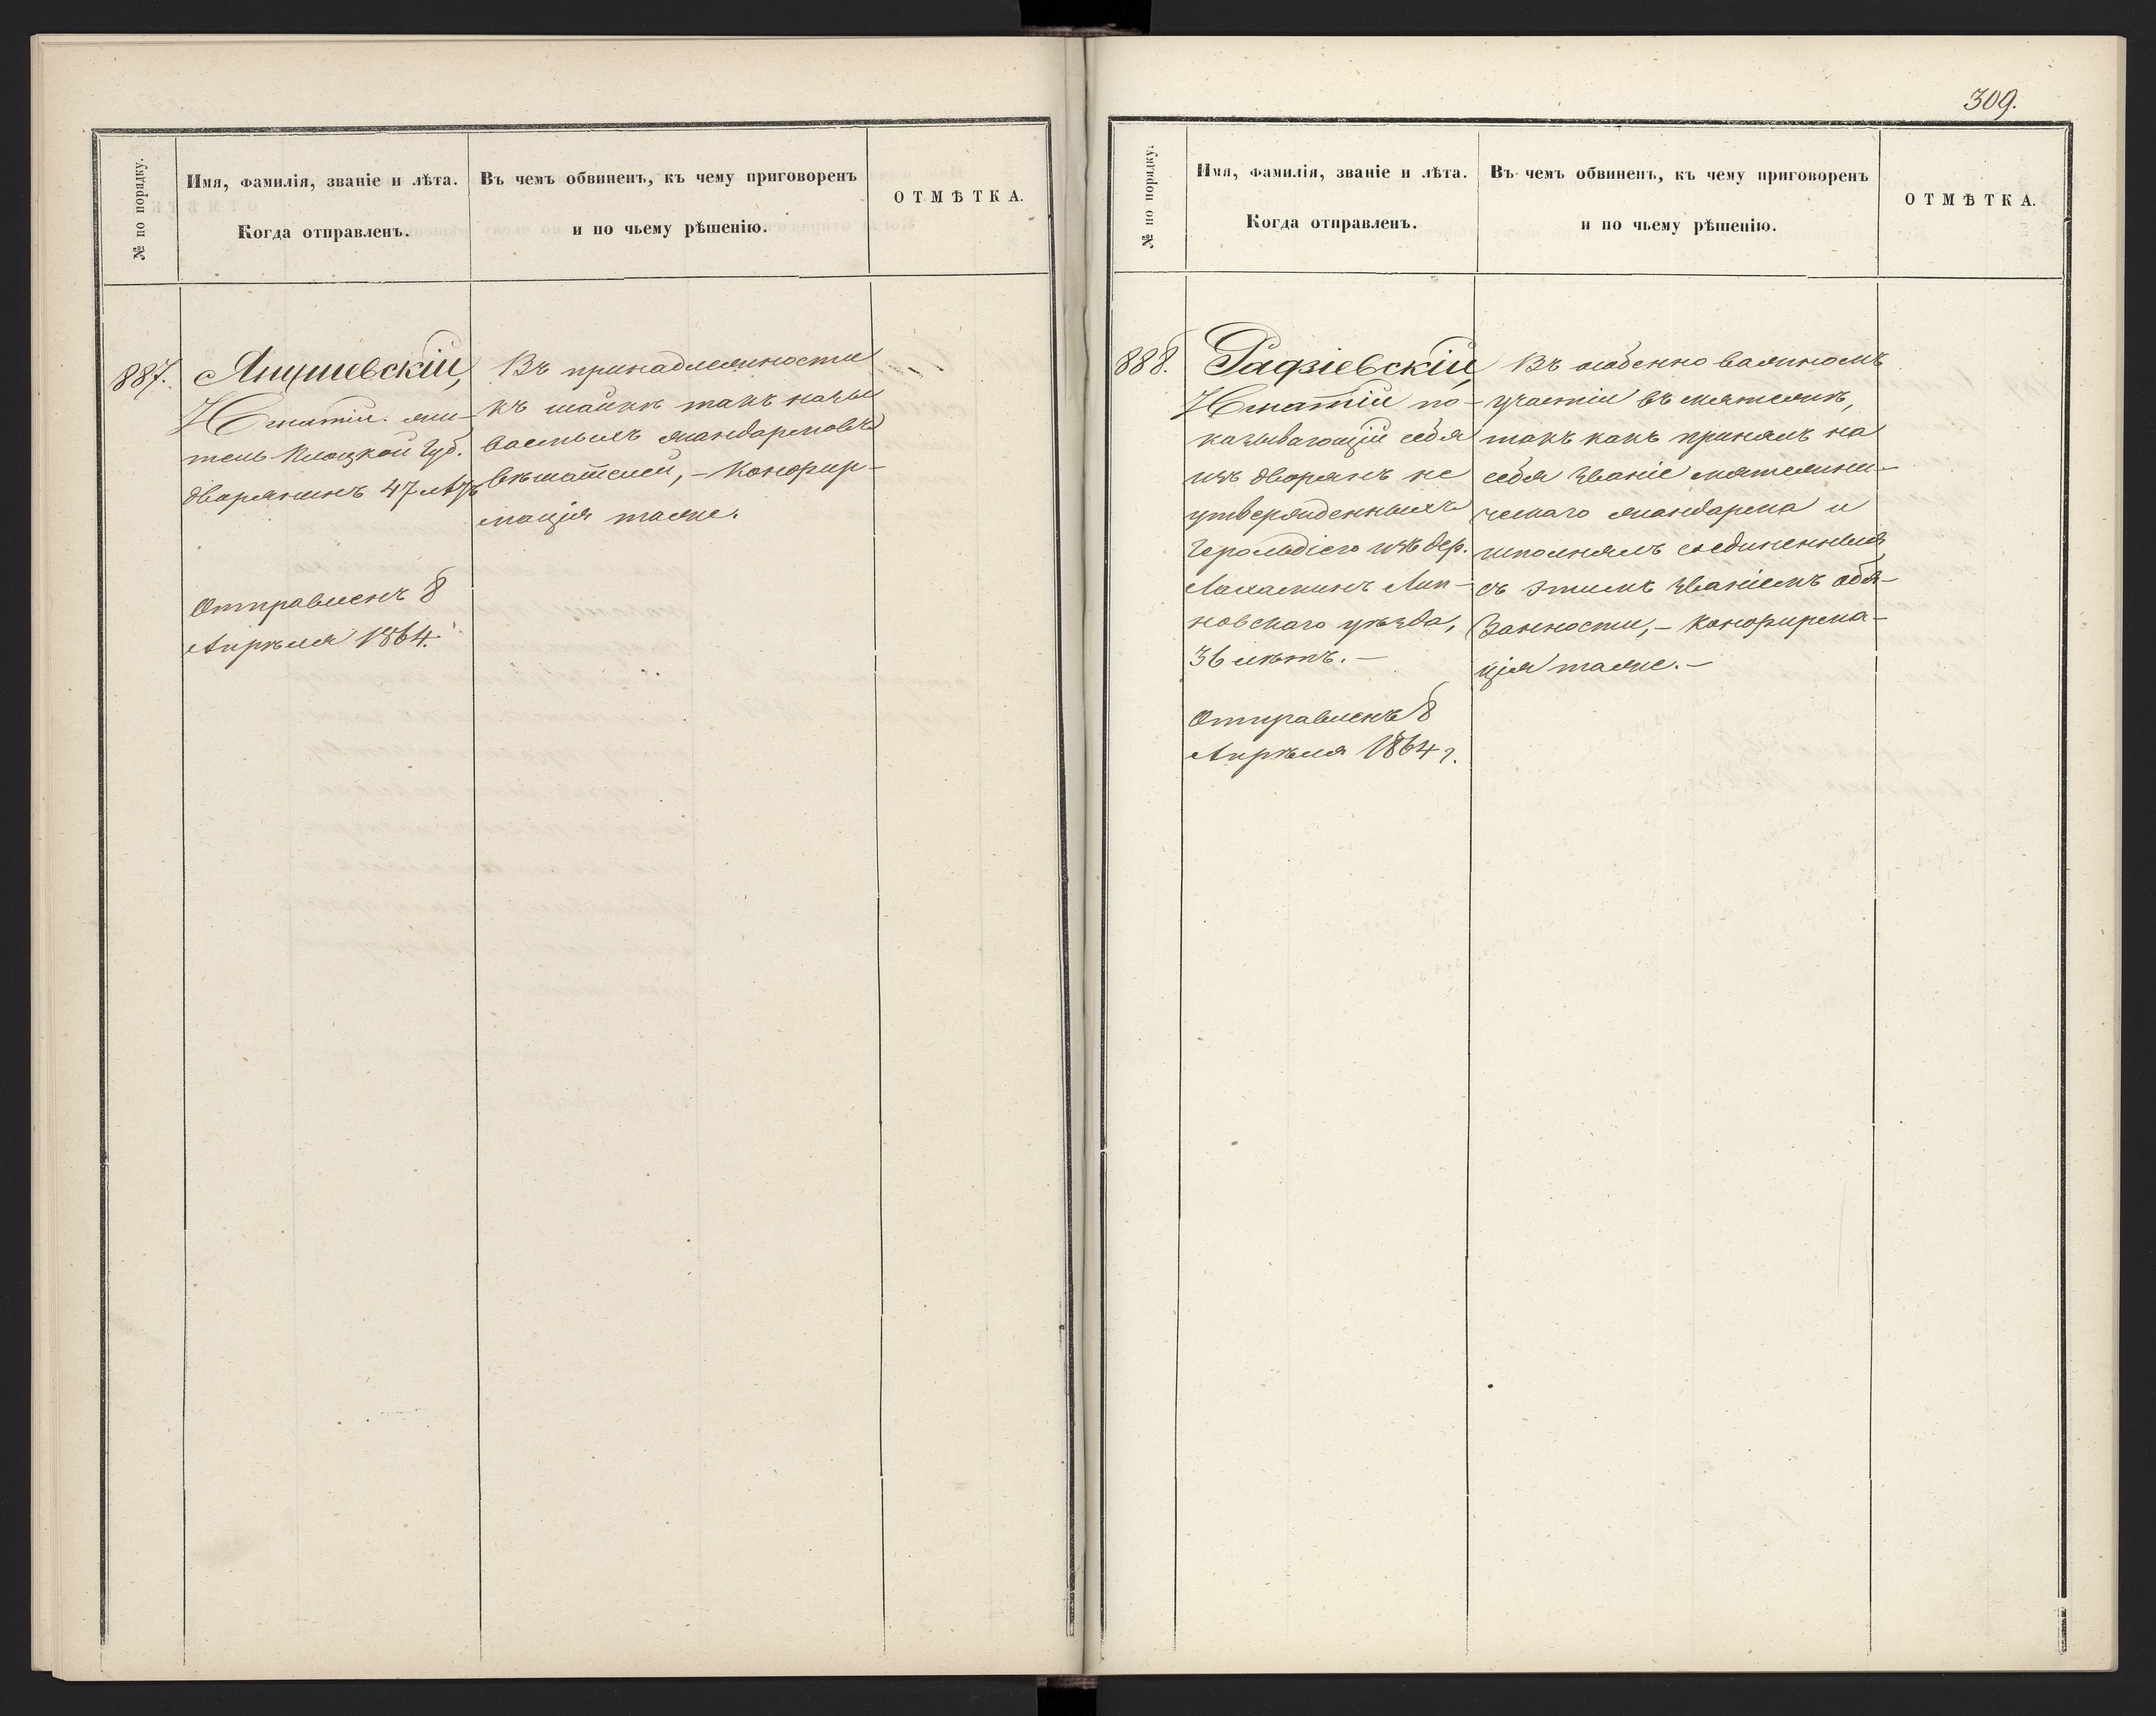 309.
№ по порядку.
Имя, фамилія, званіе и лѣта.
Когда отправленъ.
Въ чемъ обвиненъ, къ чему приговоренъ
и по чьему рѣшенію.
ОТМѢТКА.
887.
Янушевскій,
Игнатій. жи-
тель Плоцкой Губ.
дворянинъ 47 лѣтъ
Отправленъ 8
Апрѣля 1864.
Въ принадлежности
къ шайкѣ такъ назы
ваемыхъ жандармовъ
вѣшателей, – Конфир-
мація таже.
№ по порядку.
Имя, фамилія, званіе и лѣта.
Когда отправленъ.
Въ чемъ обвиненъ, къ чему приговоренъ
и по чьему рѣшенію.
ОТМѢТКА.
888.
Радзіевскій,
Игнатій по-
казывающій себя
изъ дворянъ не
утвержденныхъ
Герольдіею изъ дер.
Лип-
новскаго уѣзда,
36 лѣтъ. –
Отправленъ 8
Апрѣля 1864 г.
Въ особенно важномъ
участіи въ мятежѣ,
такъ какъ принялъ на
себя званіе мятежни-
ческаго жандарма и
исполнялъ соединенныя
съ этимъ званіемъ обя-
занности, – Конфирма-
ція таже. –